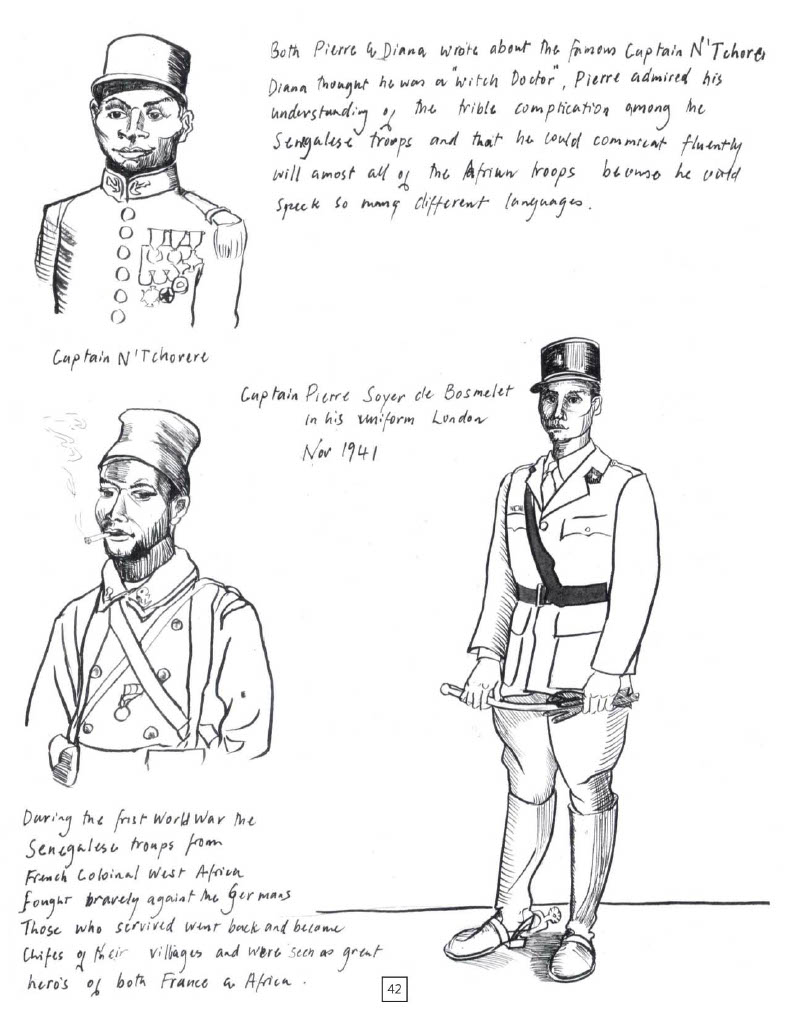 Both Pierre & Diana wrote about the famous Captain N'Tchorere
Diana thought he was a "witch Doctor", Pierre admired his
understanding of the trible complication among the
Senegalese troops and that he could commicat fluently
will amost all of the African troops becuose he could
speck so many different languages.
Captain N'Tchorere
Captain Pierre Soyer de Bosmelet
in his uniform London
Nov 1941
During the frist World War the
Senegalese troups from
French Coloinal West Africa
fought bravely against the Germans
Those who survived went back and became
Chifes of their villiages and were seen as great
hero's of both France & Africa.
42